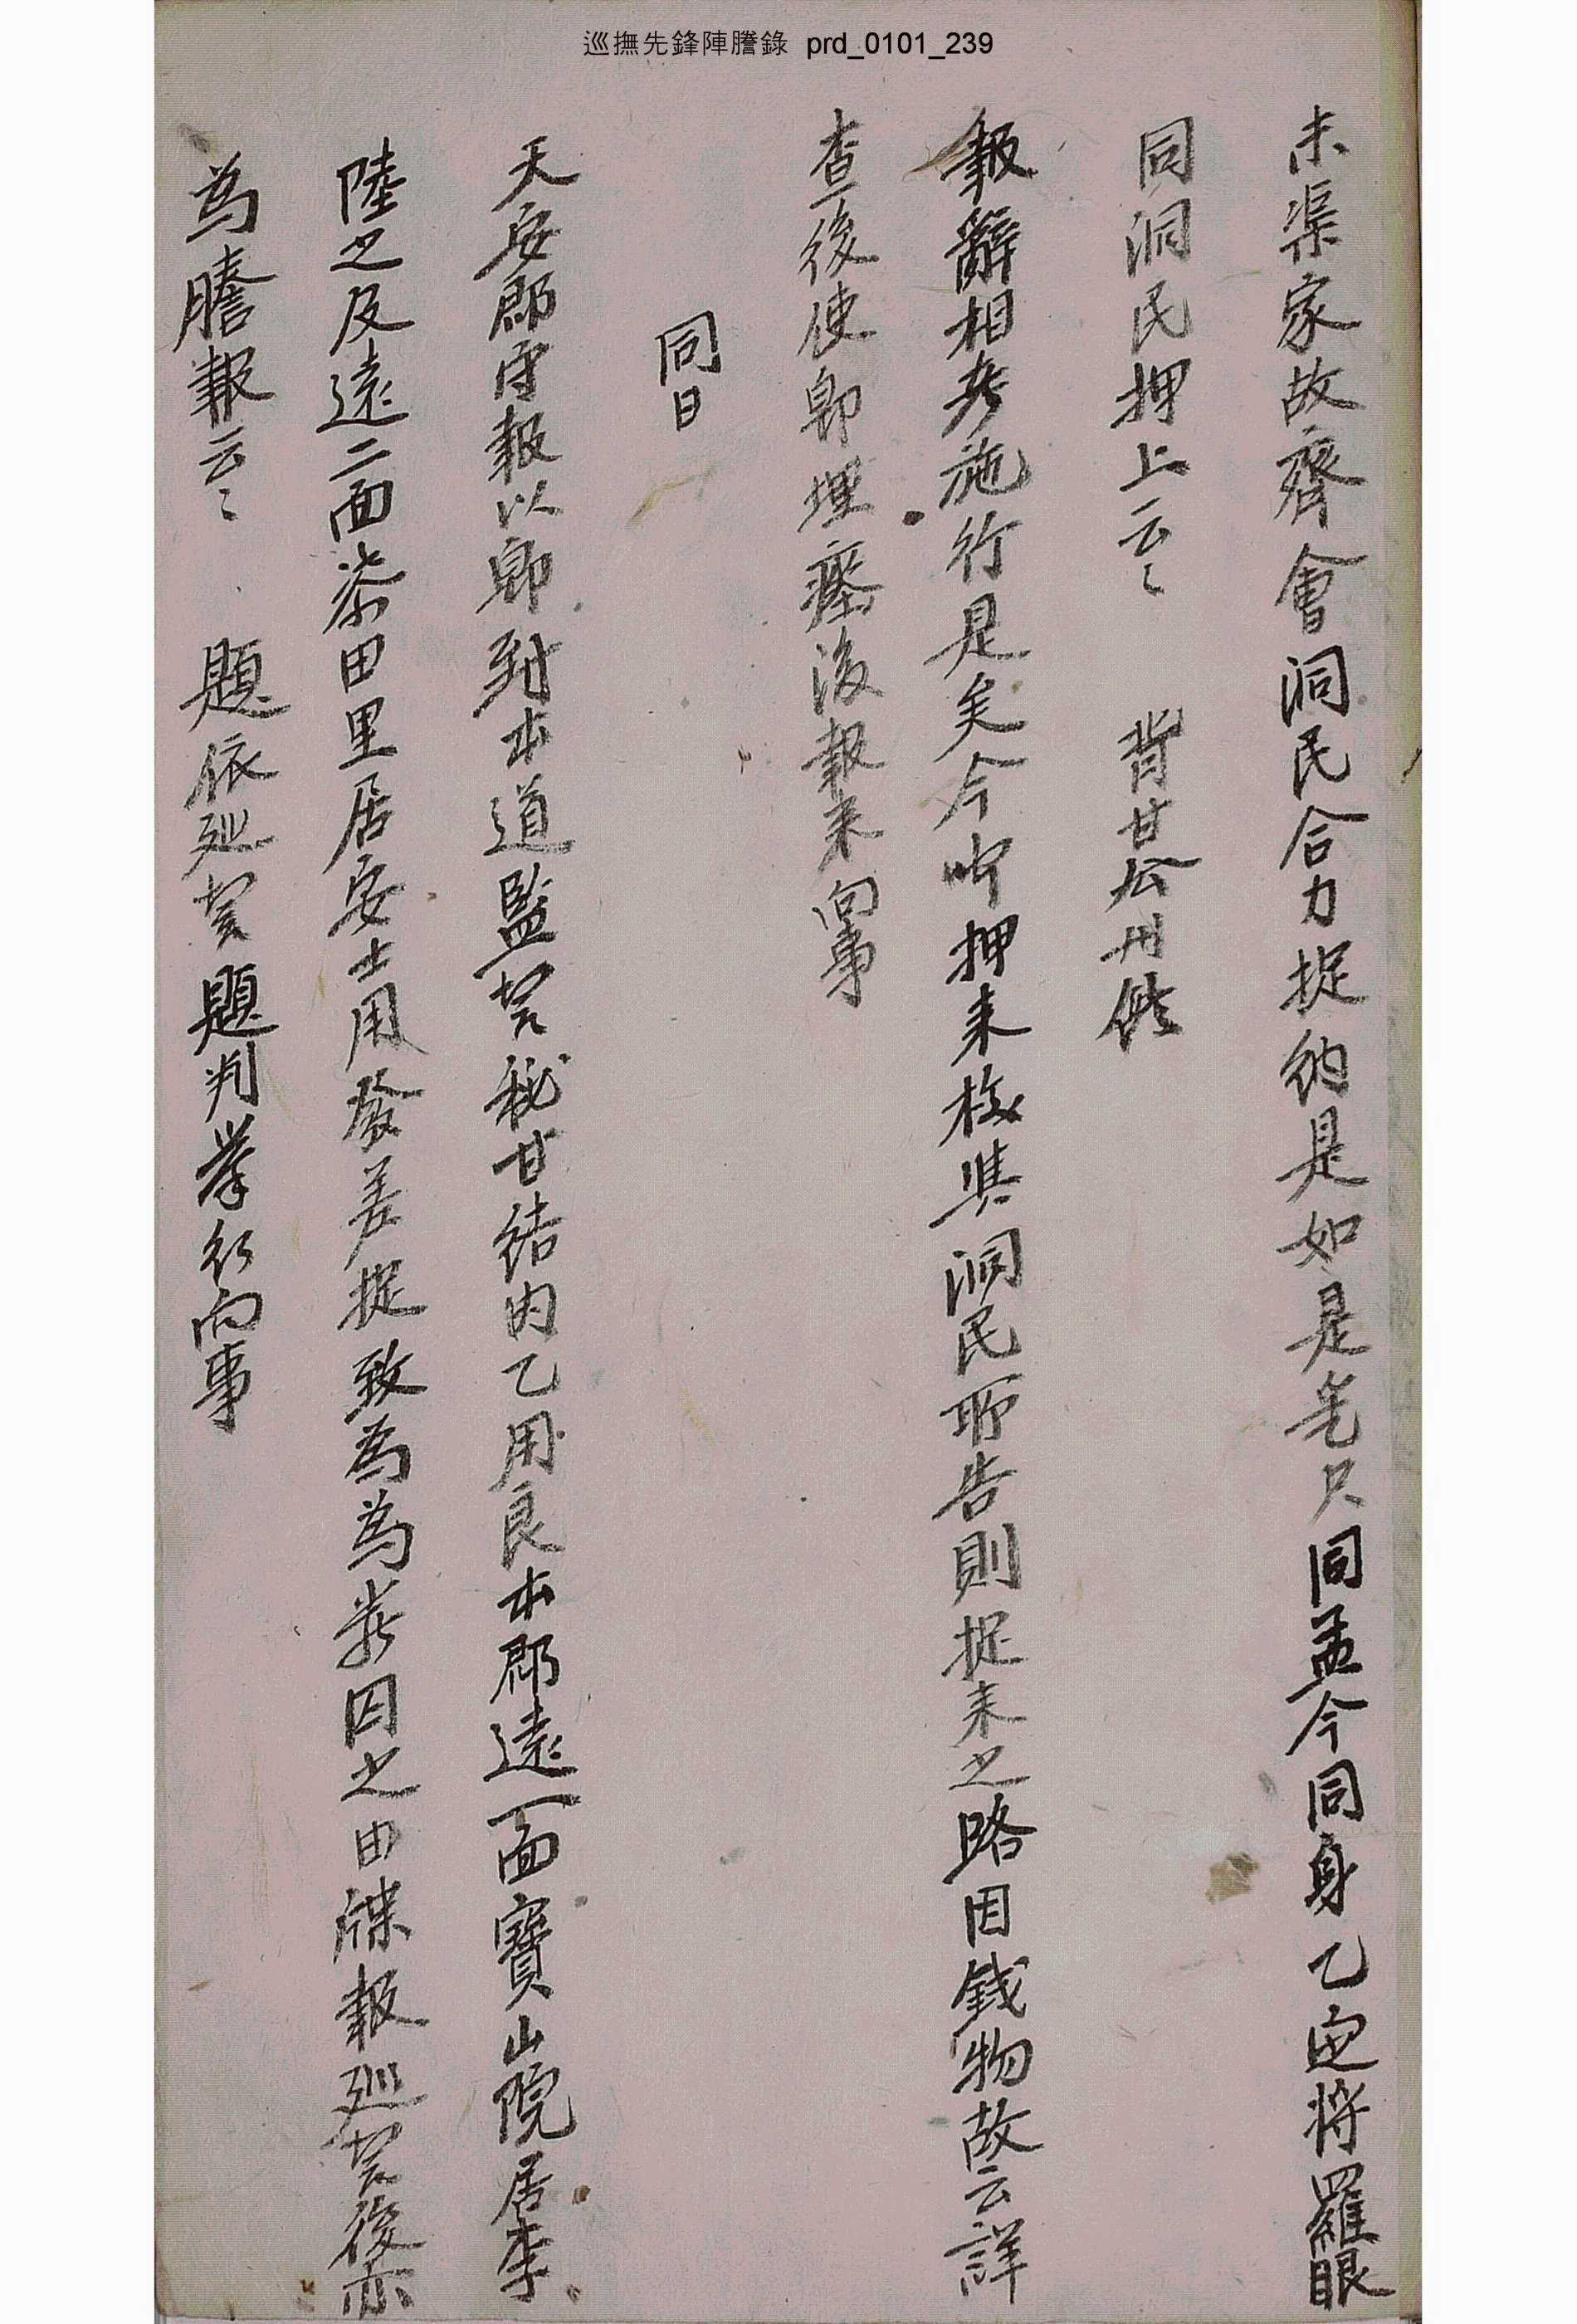 巡撫先鋒陣謄錄 prd_0101_239
未渠家故齊會洞民合力捉納是如是乞只同孟令同身乙定將羅眼
同洞民押上云〻 背甘公州供
報辭相考施行是矣今此押來校隼洞民所告則捉來之路因錢物故云詳
查後使卽埋瘞後報來向事
同日
天安郡守報以卽到本道監營秘甘結內乙用良本郡遠一面寶山院居李
陸之及遠二面柰田里居安士用發差捉致爲爲嚴囚之由牒報巡營後亦
爲謄報云〻 題依巡營題判擧行向事